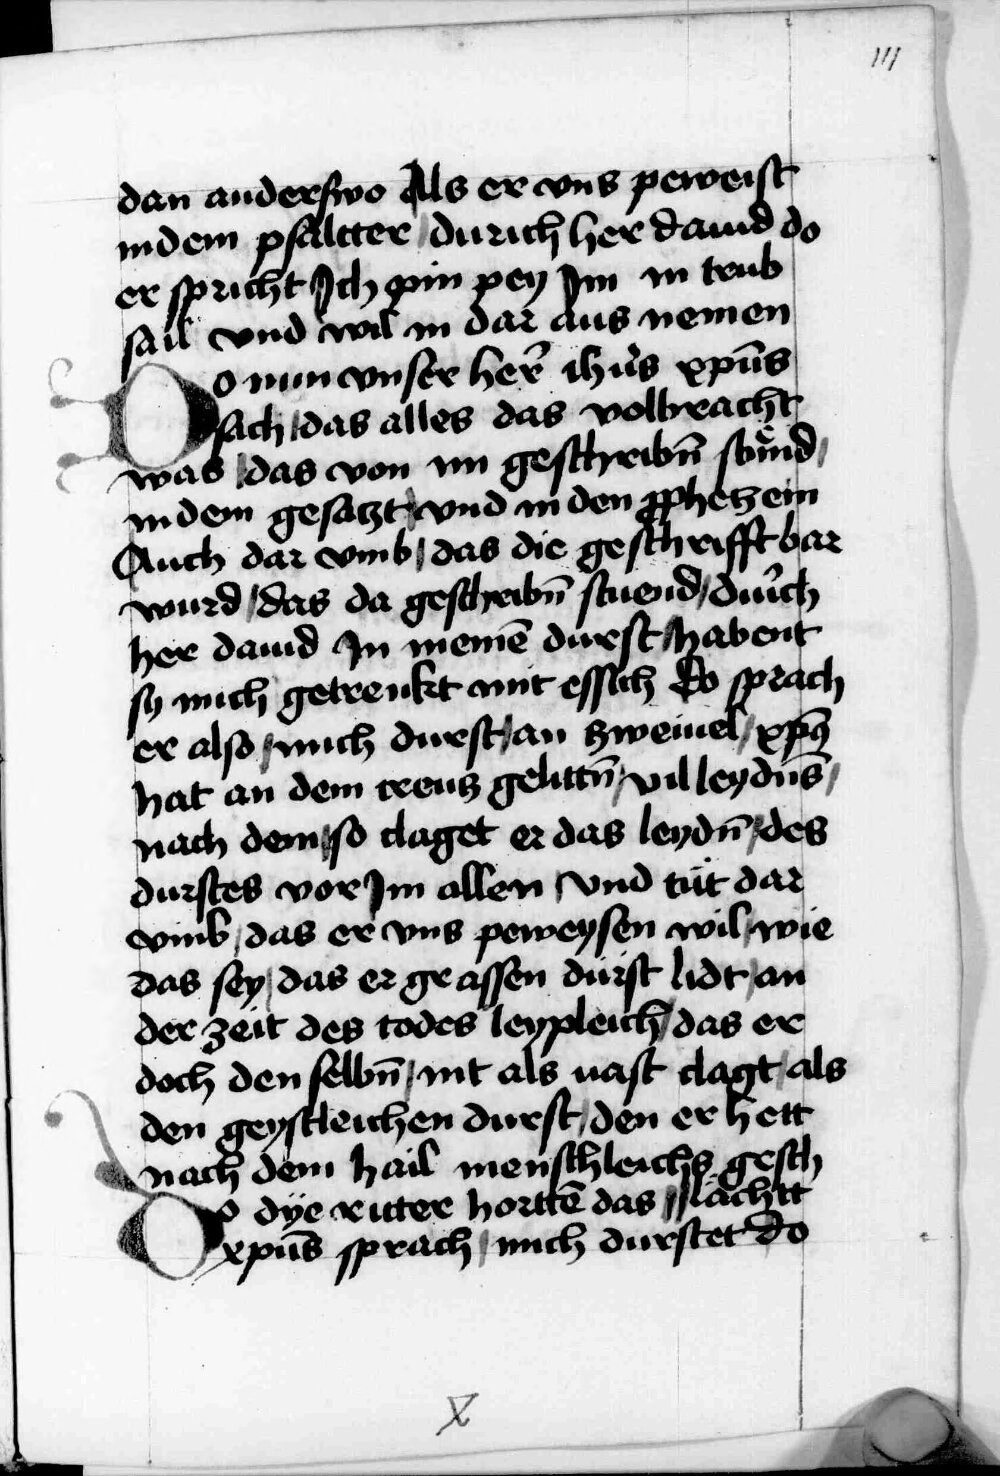 111
dan anderswo Als er vns peweist
in dem psaltter / durich her dauid do
er spricht Ich pin pey Im in trub
sail vnd wil in dar aus nemen
Do nun vnser her̄ ih̄us xp̄us
sach / das alles das volbracht
was / das von im geschribn̄ stůnd /
in dem gesatzt / vnd in den ꝓphetzein
Auch dar vmb / das die geschrifft bar
wurd / das da geschribn̄ stuend / durch
her dauid In meinē durst / habent
sy mich getrenkt mit essich Do sprach
er also / mich durst / an zweiuel / xpūs
hat an dem creutz gelittn̄ / vil leydn̄s /
nach dem / so claget er das leydn̄ / des
durstes vor Im allen / vnd tůt dar
vmb / das er vns peweysen wil / wie
das sey / das er grassen durst lidt / an
der zeit des todes leypleich / das er
doch den selbn̄ / nit als uast clagt / als
den geystleichen durst / den er hett
nach dem hail menschleichs gesch
lächtt
Do dÿe ritter hortē das //
xp̄us sprach / mich durstet do
X